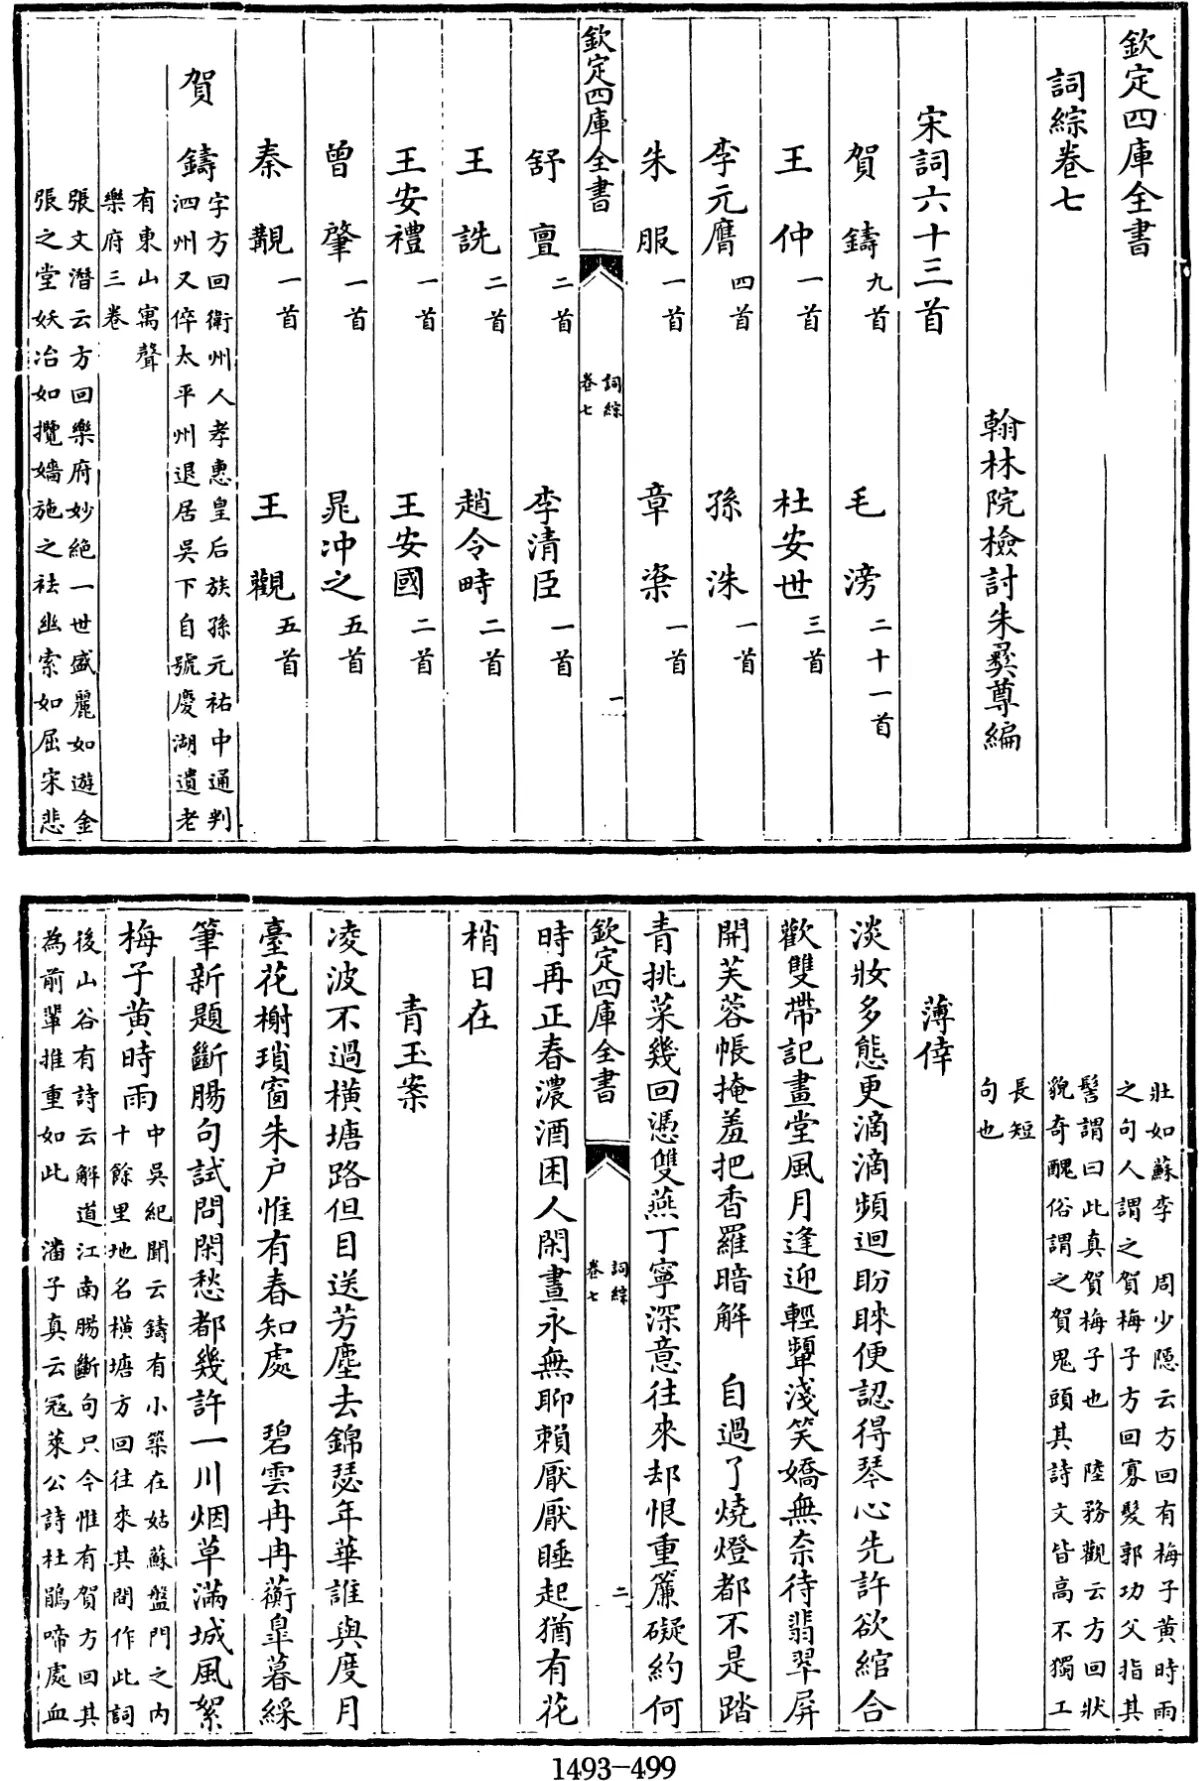 欽定四庫全書
詞綜卷七
翰林院檢討朱彞尊編
宋詞六十三首
賀鑄九首 毛滂二十一首
王仲一首 杜安世三首
李元膺四首 孫洙一首
朱服一首 章楶一首
欽定四庫全書 詞綜卷七 一
舒亶二首 李清臣一首
王詵二首 趙令畤二首
王安禮一首 王安國二首
曾肇一首 晁冲之五首
秦觏一首 王觀五首
賀鑄字方回衛州人孝惠皇后族孫元祐中通判
泗州又倅太平州退居吳下自號慶湖遺老
有東山寓聲
樂府三卷
張文潛云方回樂府妙絶一世盛麗如遊金
張之堂妖冶如攬嬙施之袪幽索如屈宋悲
壯如蘇李 周少隠云方回有梅子黄時雨
之句人謂之賀梅子方回寡髮郭功父指其
髻謂曰此真賀梅子也 陸務觀云方回狀
貌奇醜俗謂之賀鬼頭其詩文皆高不獨工
長短
句也
薄倖
淡妝多態更滴滴頻迴盼睞便認得琴心先許欲綰合
歡雙帶記畫堂風月逢迎輕顰淺笑嬌無奈待翡翠屏
開芙蓉帳掩羞把香羅暗解 自過了燒燈都不是踏
青挑菜幾回憑雙燕丁寧深意往來却恨重簾礙約何
欽定四庫全書 詞綜卷七 二
時再正春濃酒困人閑晝永無聊賴厭厭睡起猶有花
梢日在
青玉案
凌波不過横塘路但目送芳塵去錦瑟年華誰與度月
臺花榭瑣窗朱户惟有春知處 碧雲冉冉蘅臯暮綵
筆新題斷腸句試問閑愁都幾許一川烟草滿城風絮
梅子黄時雨中吳紀聞云鑄有小築在姑蘇盤門之内
十餘里地名横塘方回往來其間作此詞
後山谷有詩云解道江南腸斷句只今惟有賀方回其
為前輩推重如此 潘子真云冦萊公詩杜鵑啼處血
1493-499